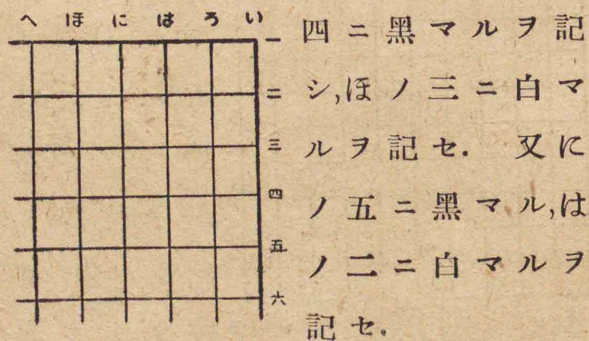 へ ほ に は ろ い
一
二
三
四
五
六
四ニ黑マルヲ記
シ,ほノ三ニ白マ
ルヲ記セ. 又に
ノ五ニ黑マル,は
ノ二ニ白マルヲ
記セ.